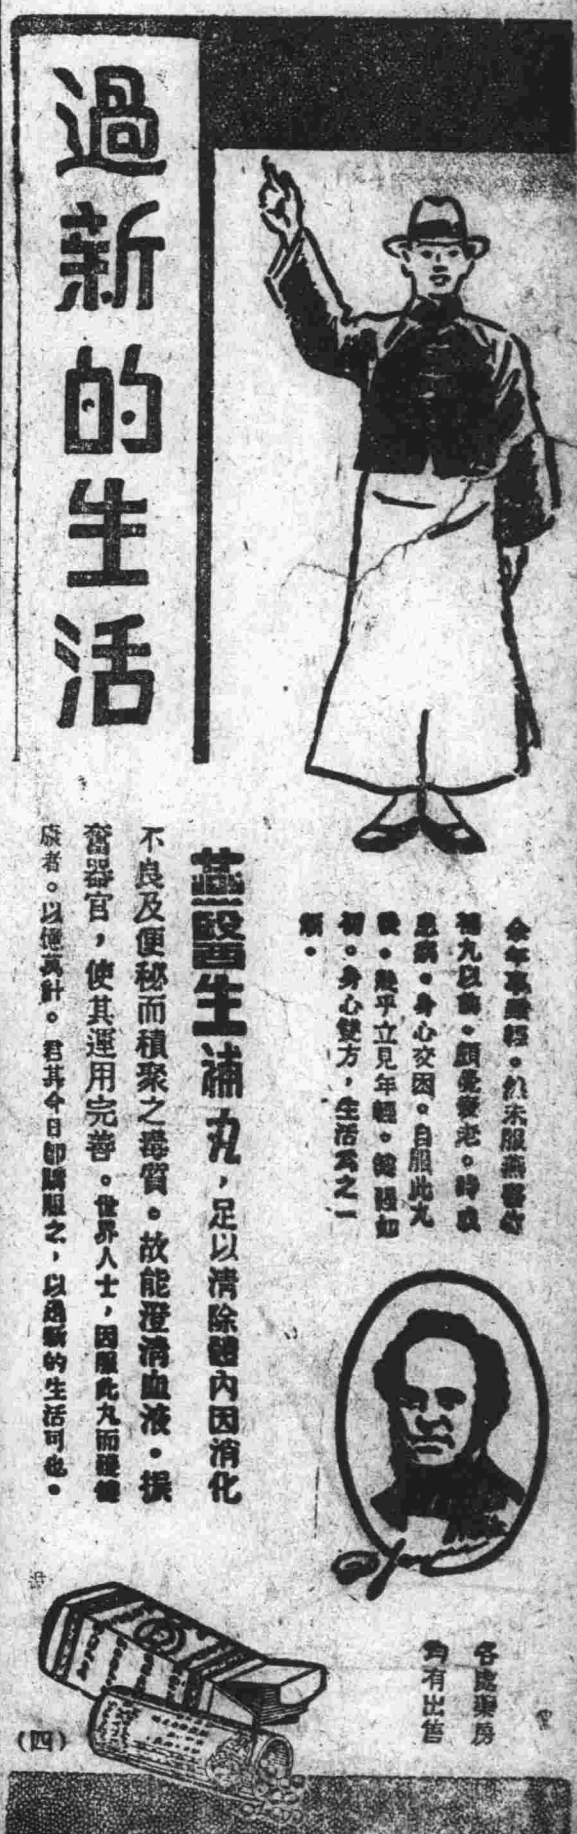 過新的生活
余年事雖輕。然未服燕醫生
補丸以前。頗覺衰老。時或
患病。身心交困。自服此丸
後。幾乎立見年輕。健强如
初。身心雙方,生活為之一
燕醫生補丸,足以清除體內因消化
不良及便秘而積聚之毒質。故能澄清血液。振
奮器官,使其運用完善。世界人士,因服此丸而獲健
康者。以億萬計。君其今日卽購服之,以過新的生活可也。
各處藥房
均有出售
(四)